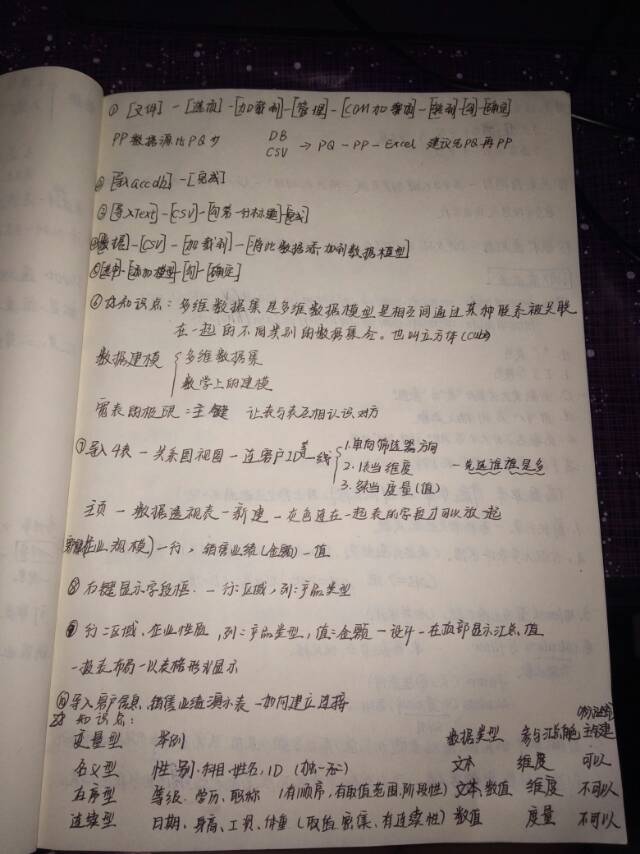 ① [文件]-[选项]-[加载剂]-[管理]-[COM加载项]-[转到]-[勾]-[确定]
PP数据源比PQ少 DB
CSV → PQ-PP-Excel 建议先PQ再PP
② [导入accdb]-[完成]
③ [导入Text]-[CSV]-[勾第一行标题]-[完成]
④ [数据]-[CSV]-[加载到]-[将此数据添加到数据模型]
⑤ [添加模型]-[勾]-[确定]
⑥ 知识点：多维数据集是多维数据模型是相互间通过某种联系被关联
在一起的不同类别的数据集合。也叫立方体(cub)
数据建模 { 多维数据集
数学上的建模
需表的极限=主键 让表与表互相认识对方
⑦ 导入4表-关系图视图-连客户ID 一线 { 1.单向筛选器方向
2.1表当维度 -先选谁谁是多
3.多表当度量(值)
主页-数据透视表-新建-灰色连在一起表的字段才可以放一起
[企业规模]-行，销售业绩(金额)-值
⑧ 右键显示字段框-行:区域，列:产品类型
⑨ 行=区域、企业性质，列:产品类型，值=金额-设计-在顶部显示汇总，值
-报表布局-以表格形式显示
⑩ 导入客户信息、销售业绩演示表-如何建立连接
知识点：
变量型 举例 数据类型 参与汇总功能 主键
名义型 性别、科目、姓名、ID (独一无二) 文本 维度 可以
有序型 等级、学历、职称 (有顺序，有取值范围，阶段性) 文本、数值 维度 不可以
连续型 日期、身高、工资、体重 (取值密集、有连续性) 数值 度量 不可以